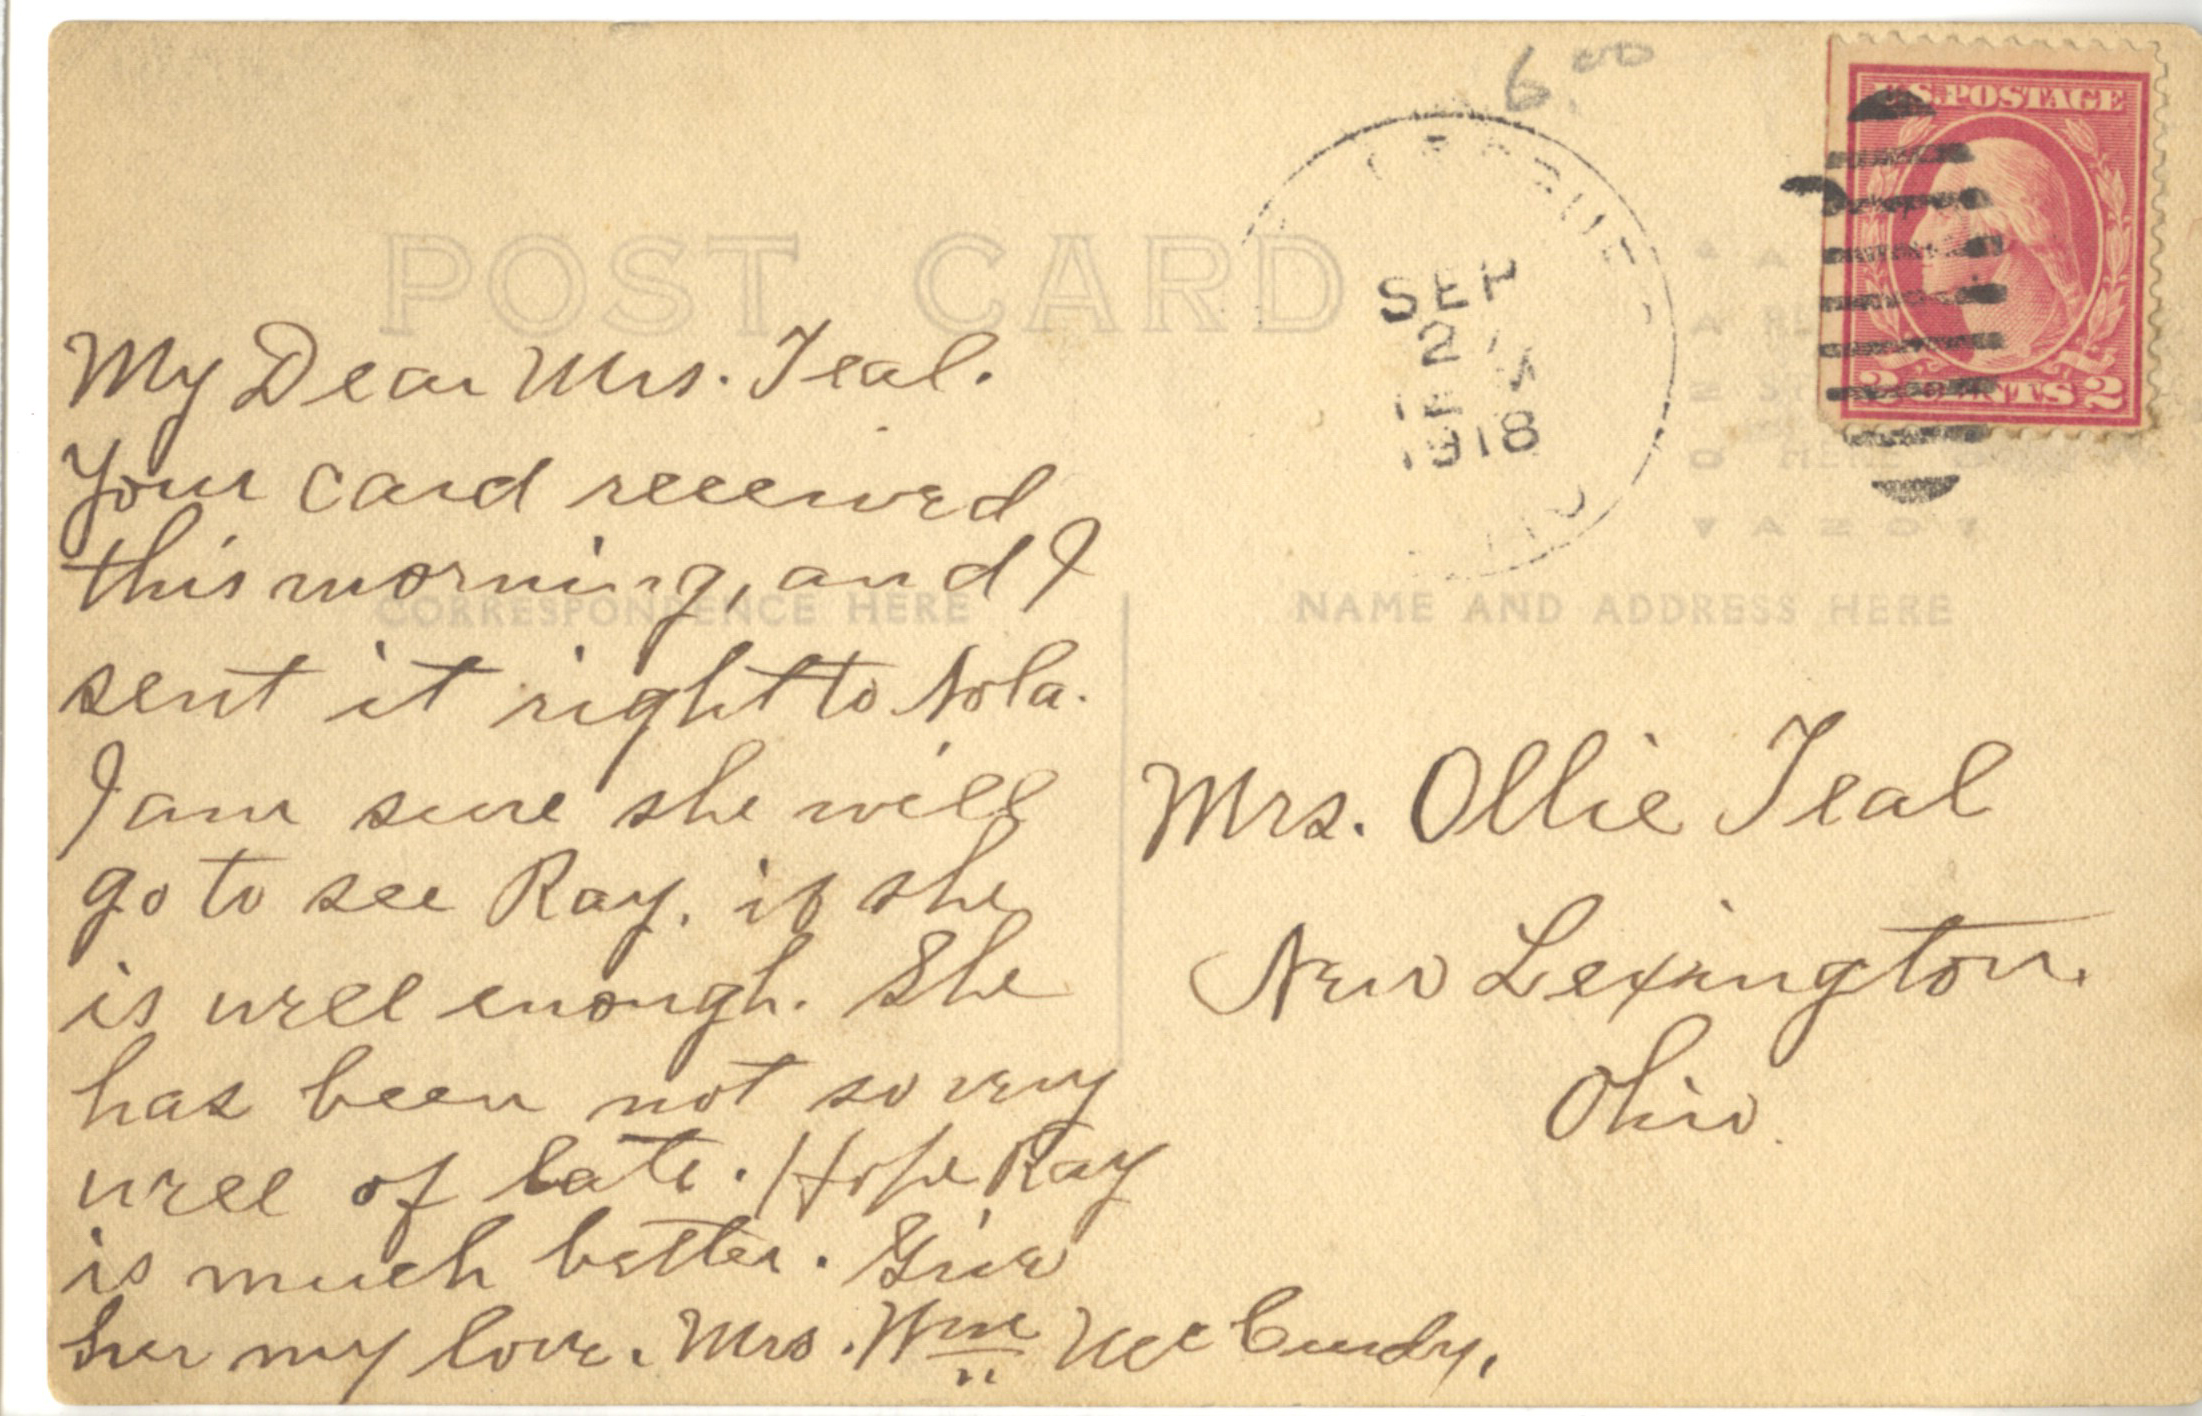 6.00
U.S. POSTAGE
2 CENTS 2
POST CARD
SEP
2
1918
CORRESPONDENCE HERE
NAME AND ADDRESS HERE
My Dear Mrs. Teal.
Your card received
this morning, and I
sent it right to Nola.
I am sure she will
go to see Ray. if she
is well enough. She
has been not so very
well of late. Hope Ray
is much better. Give
her my love. Mrs. Wm McCurdy.
Mrs. Ollie Teal
New Lexington.
Ohio.